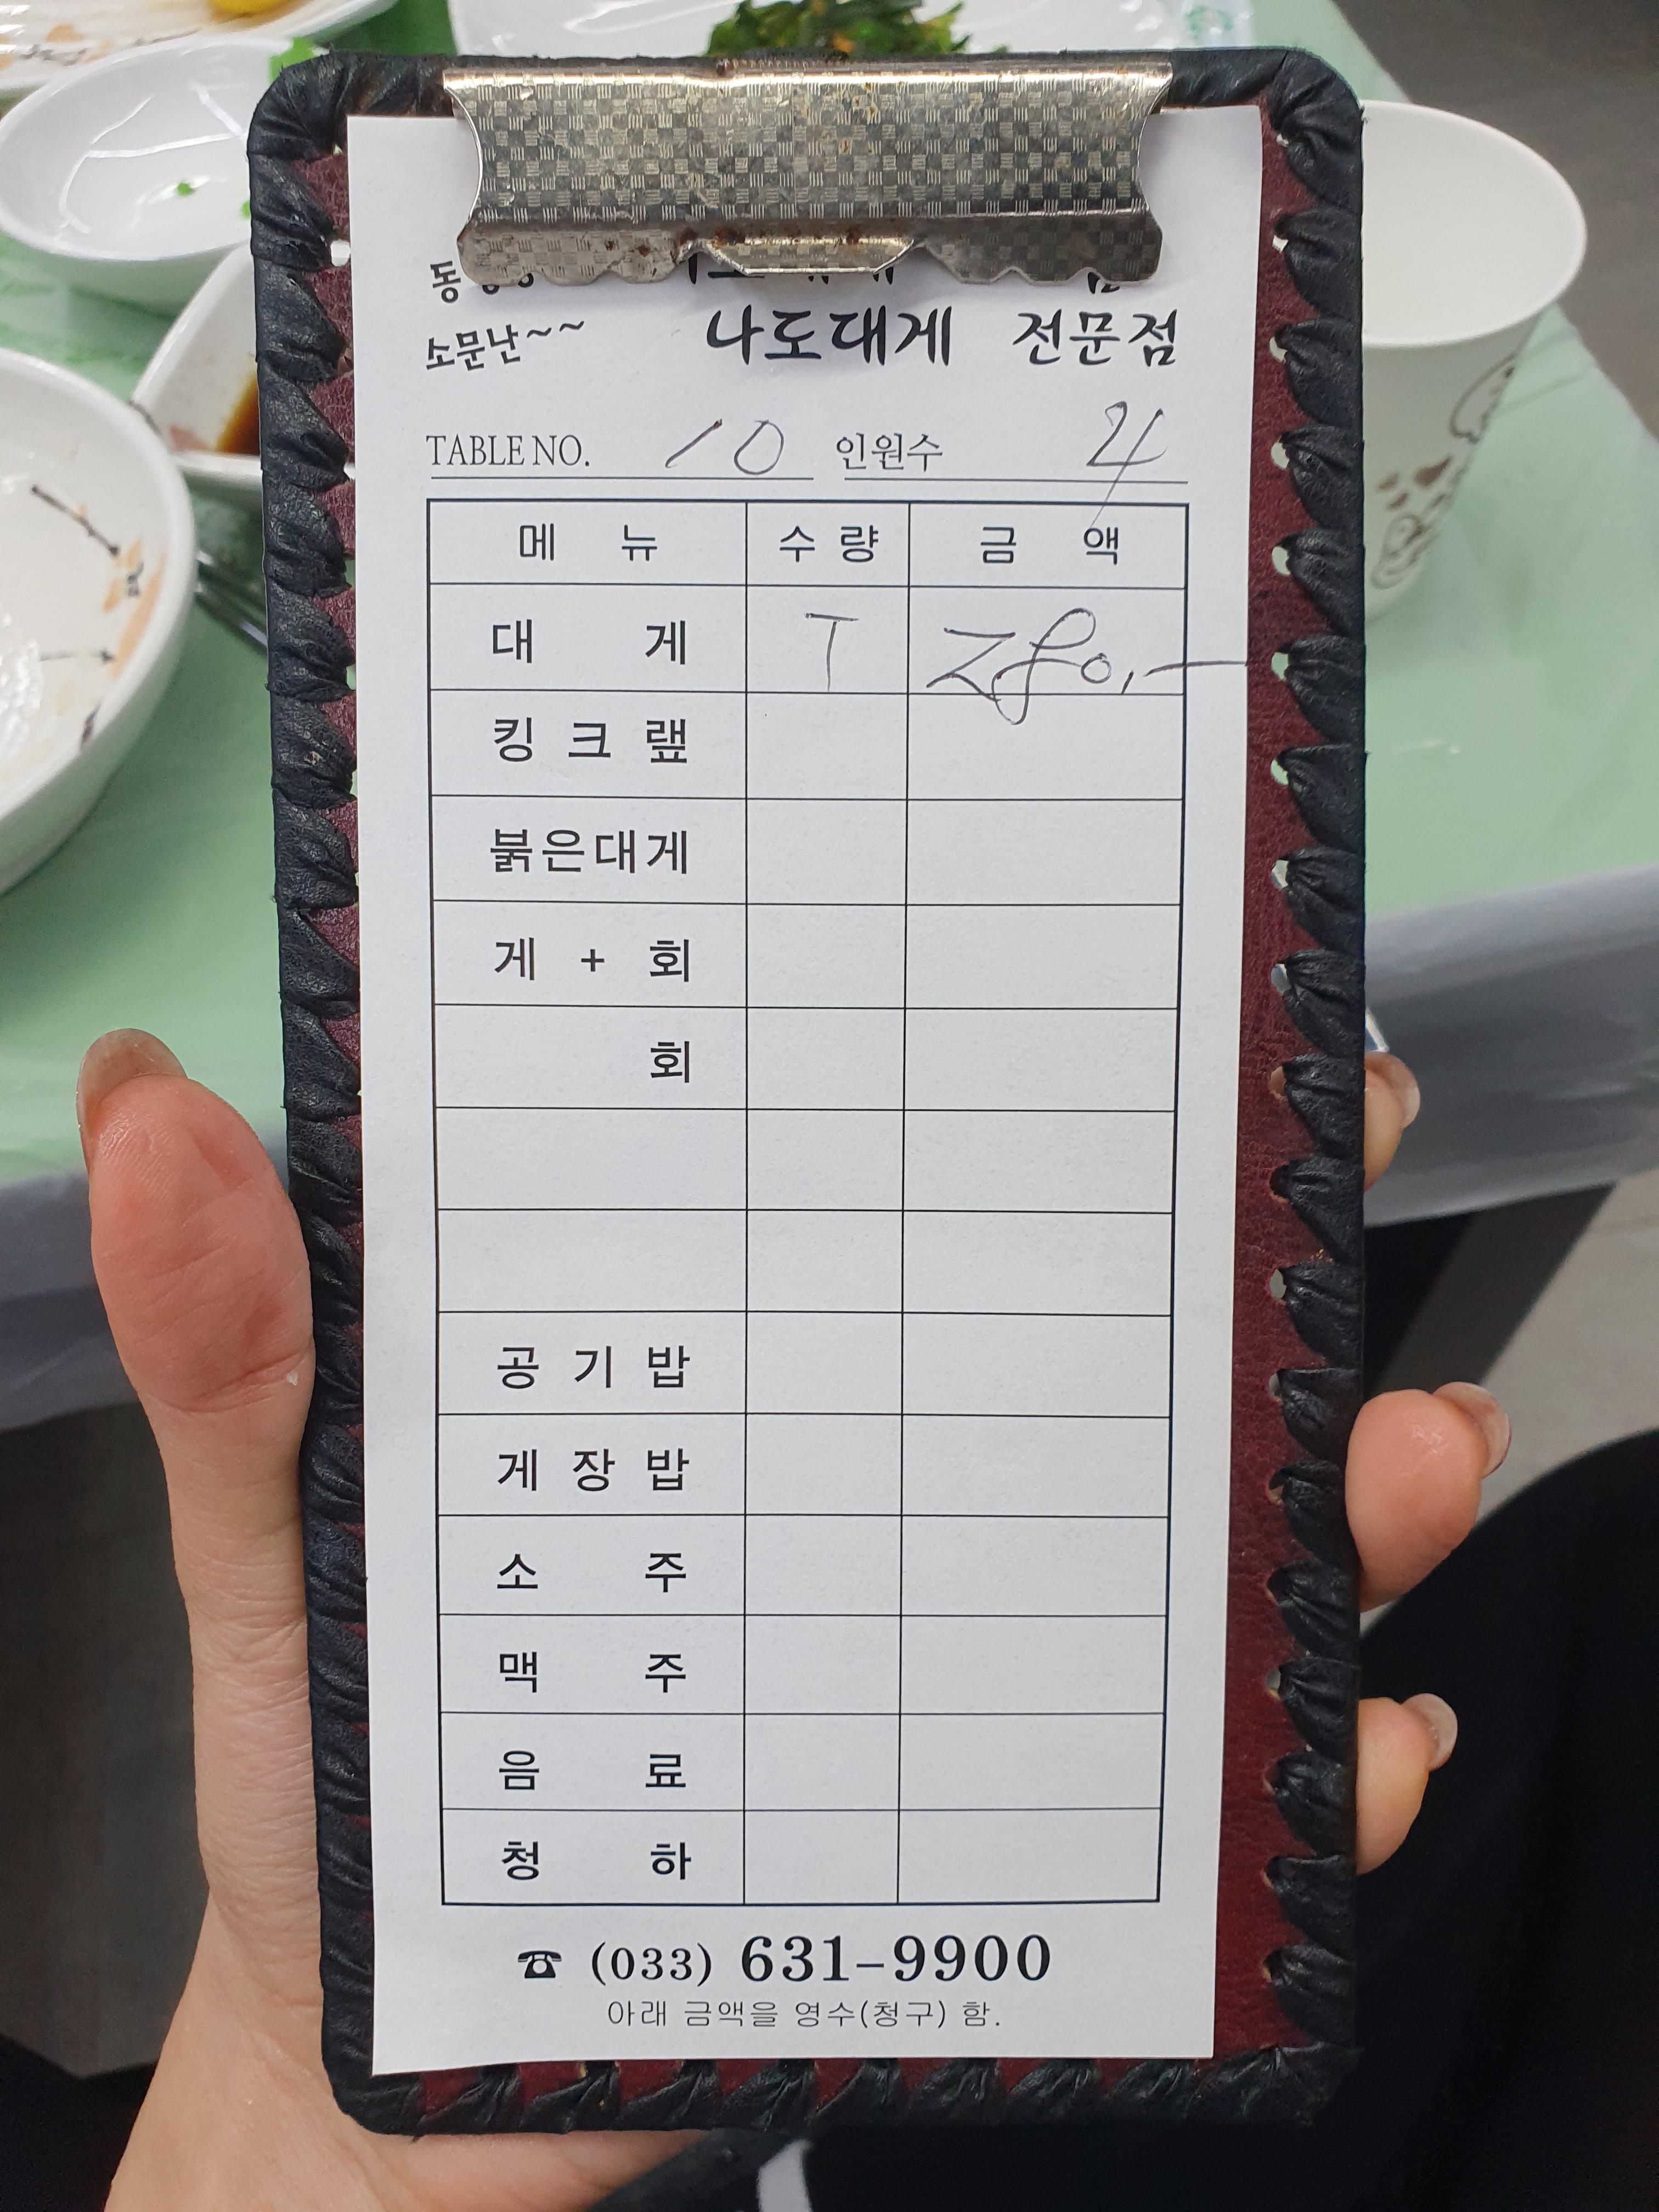 소문난~~ 나도대게 전문점
TABLE NO. 10 인원수 4
메 뉴 수 량 금 액
대 게 T 280,-
킹 크 랲
붉은대게
게 + 회
회
공 기 밥
게 장 밥
소 주
맥 주
음 료
청 하
☎ (033) 631-9900
아래 금액을 영수(청구) 함.